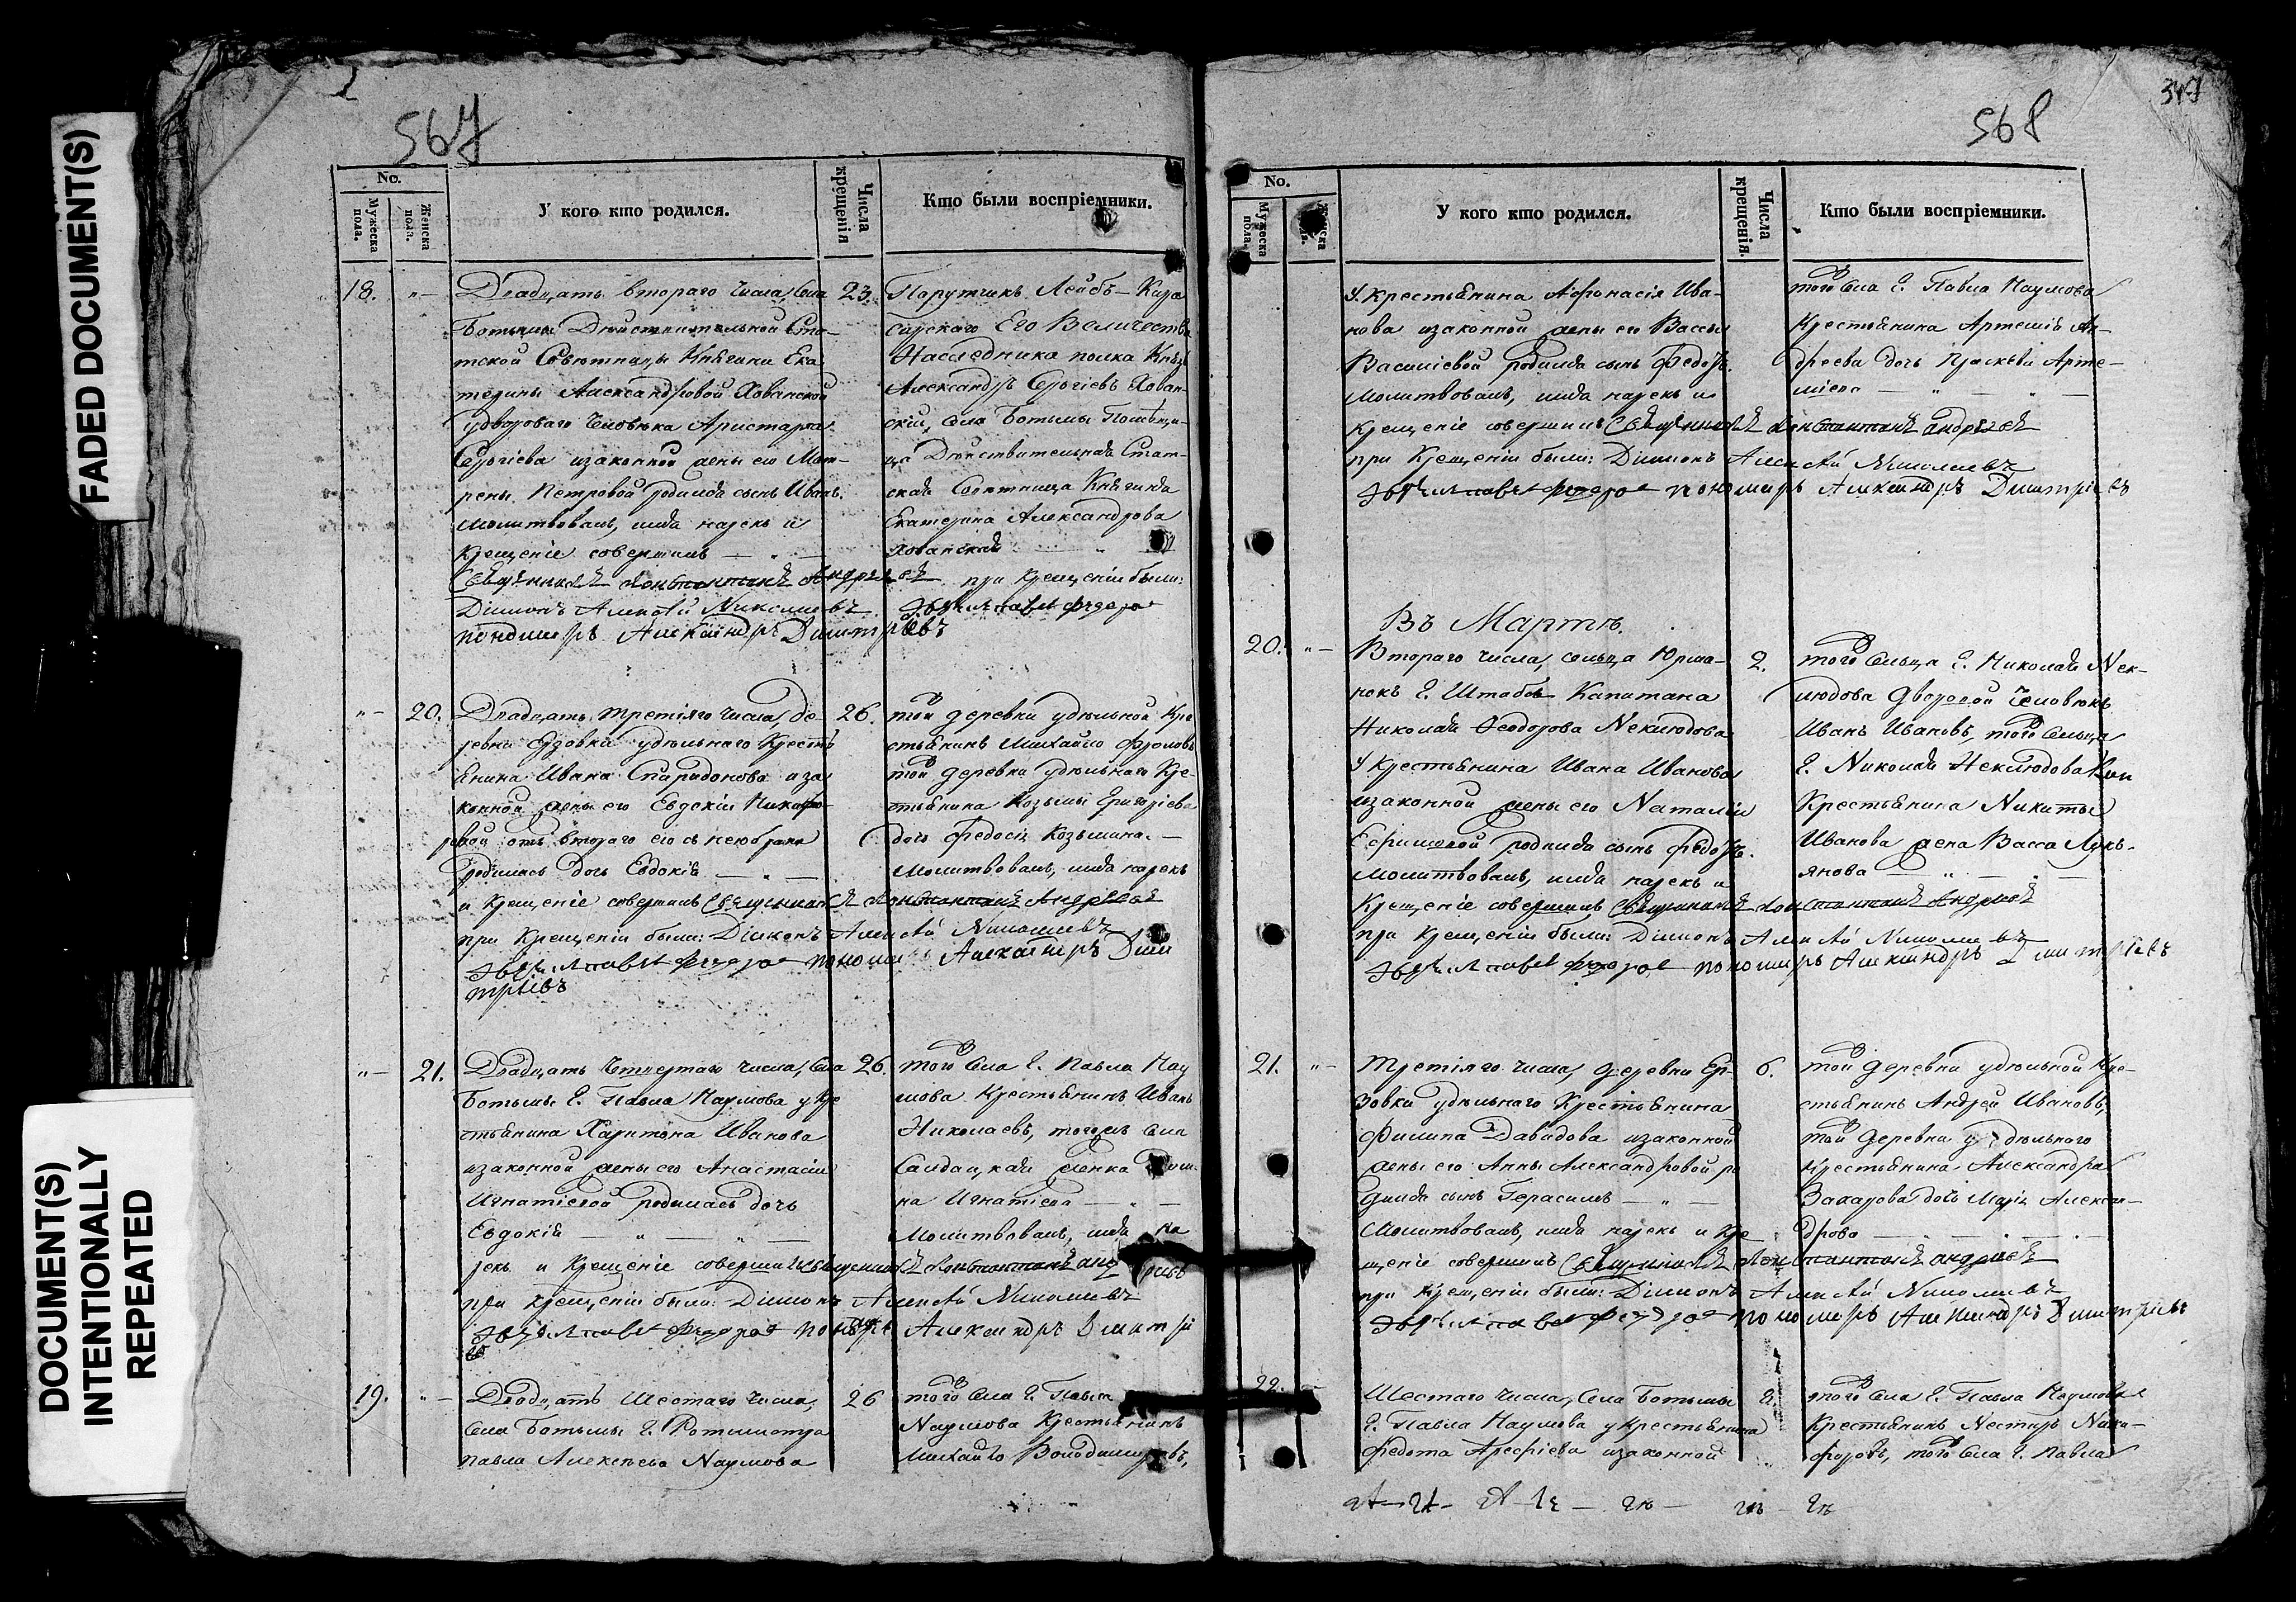 FADED DOCUMENT(S)
DOCUMENT(S)
INTENTIONALLY
REPEATED
567
No.
Мужеска пола.
Женска пола.
У кого кто родился.
Числа крещенія
Кто были воспріемники.
18.
Двадцать втораго числа, села
Ботьмы Дѣйствительной Ста-
тской Совѣтницы Княгини Ека
терины Александровой Хованской
у двороваго человѣка Аристарха
Сергіева и законной жены его Мат-
рены Петровой родился сынъ Иванъ.
молитвовалъ, имя нарекъ и
крещеніе совершилъ
Священникъ Константинъ Андреевъ
Діаконъ Алексѣй Николаевъ
пономарь Александръ Димитріевъ
23.
Порутчикъ Лейбъ-Кира
сирскаго Его Величества
Наслѣдника полка Князь
Александръ Сергіевъ Хован-
скій, села Ботьмы Помѣщи-
ца Дѣйствительная Стат-
ская Совѣтница Княгиня
Екатерина Александрова
Хованская
при крещеніи были:
20.
Двадцать третіяго числа, де-
ревни удѣльнаго Кресть
янина Ивана Спиридонова и за
конной жены его Евдокіи
отъ втораго его с нею брака
родилась дочь Евдокія
и крещеніе совершилъ Священникъ Константинъ Андреевъ
при крещеніи были: Діаконъ Алексѣй Николаевъ
пономарь Александръ Дими
тріевъ
26.
той деревни удѣльной Кре
стьянинъ Михайло Фроловъ
той деревни удѣльнаго Кре-
стьянина Козьмы Григоріева
дочь Федосія Козьмина.
молитвовалъ, имя нарекъ
21.
Двадцать четвертаго числа, села
Ботьмы Г. Павла Наумова у Кре
стьянина Харитона Иванова
и законной жены его Анастасіи
Игнатіевой родилась дочь
Евдокія
рекъ и крещеніе совершилъ Священникъ Константинъ Андреевъ
при крещеніи были: Діаконъ Алексѣй Николаевъ
Александръ Димитрі
26.
того села Г. Павла Нау
мова Крестьянинъ Иванъ
Николаевъ, того села
Салдацкая женка
на Игнатіева
молитвовалъ, имя на
19.
Двадцать шестаго числа,
села Ботьмы Г. Ротмистра
Павла Алексѣева Наумова
26
того села Г. Павла
Наумова Крестьянинъ
Михайло Володимировъ,
568
349
No.
Мужеска пола.
Женска пола.
У кого кто родился.
Числа крещенія.
Кто были воспріемники.
у крестьянина Афонасія Ива-
нова и законной жены его Вассы
Василіевой родился сынъ Федоръ.
молитвовалъ, имя нарекъ и
крещеніе совершилъ Священникъ Константинъ Андреевъ
при крещеніи были: Діаконъ Алексѣй Николаевъ
пономарь Александръ Димитріевъ
того села Г. Павла Наумова
Крестьянина Артемія Ан-
дреева дочь Прасковья Арте-
міева
Въ Мартѣ.
20.
Втораго числа, сельца Юрма-
нокъ Г. Штабсъ Капитана
Николая Феодорова Неклюдова
у крестьянина Ивана Иванова
и законной жены его Наталіи
Ефимовой родился сынъ Федоръ.
молитвовалъ, имя нарекъ и
крещеніе совершилъ Священникъ Константинъ Андреевъ
при крещеніи были: Діаконъ Алексѣй Николаевъ
пономарь Александръ Димитріевъ
2.
того сельца Г. Николая Нек-
людова дворовой человѣкъ
Иванъ Ивановъ, того сельца
Г. Николая Неклюдова
Крестьянина Никиты
Иванова жена Васса Лукь-
янова
21.
Третіяго числа, деревни Ер-
зовки удѣльнаго Крестьянина
Филипа Давыдова и законной
жены его Анны Александровой ро
дился сынъ Герасимъ
молитвовалъ, имя нарекъ и кре
щеніе совершилъ Священникъ Константинъ Андреевъ
при крещеніи были: Діаконъ Алексѣй Николаевъ
пономарь Александръ Димитріевъ
6.
той деревни удѣльной Кре-
стьянинъ Андрей Ивановъ,
той деревни удѣльнаго
Крестьянина Александра
Захарова дочь Марія Алексан-
дрова
22.
Шестаго числа, села Ботьмы
Г. Павла Наумова у крестьянина
Федота Арефіева и законной
того села Г. Павла Наумова
Крестьянинъ Несторъ Ники-
форовъ, того села Г. Павла